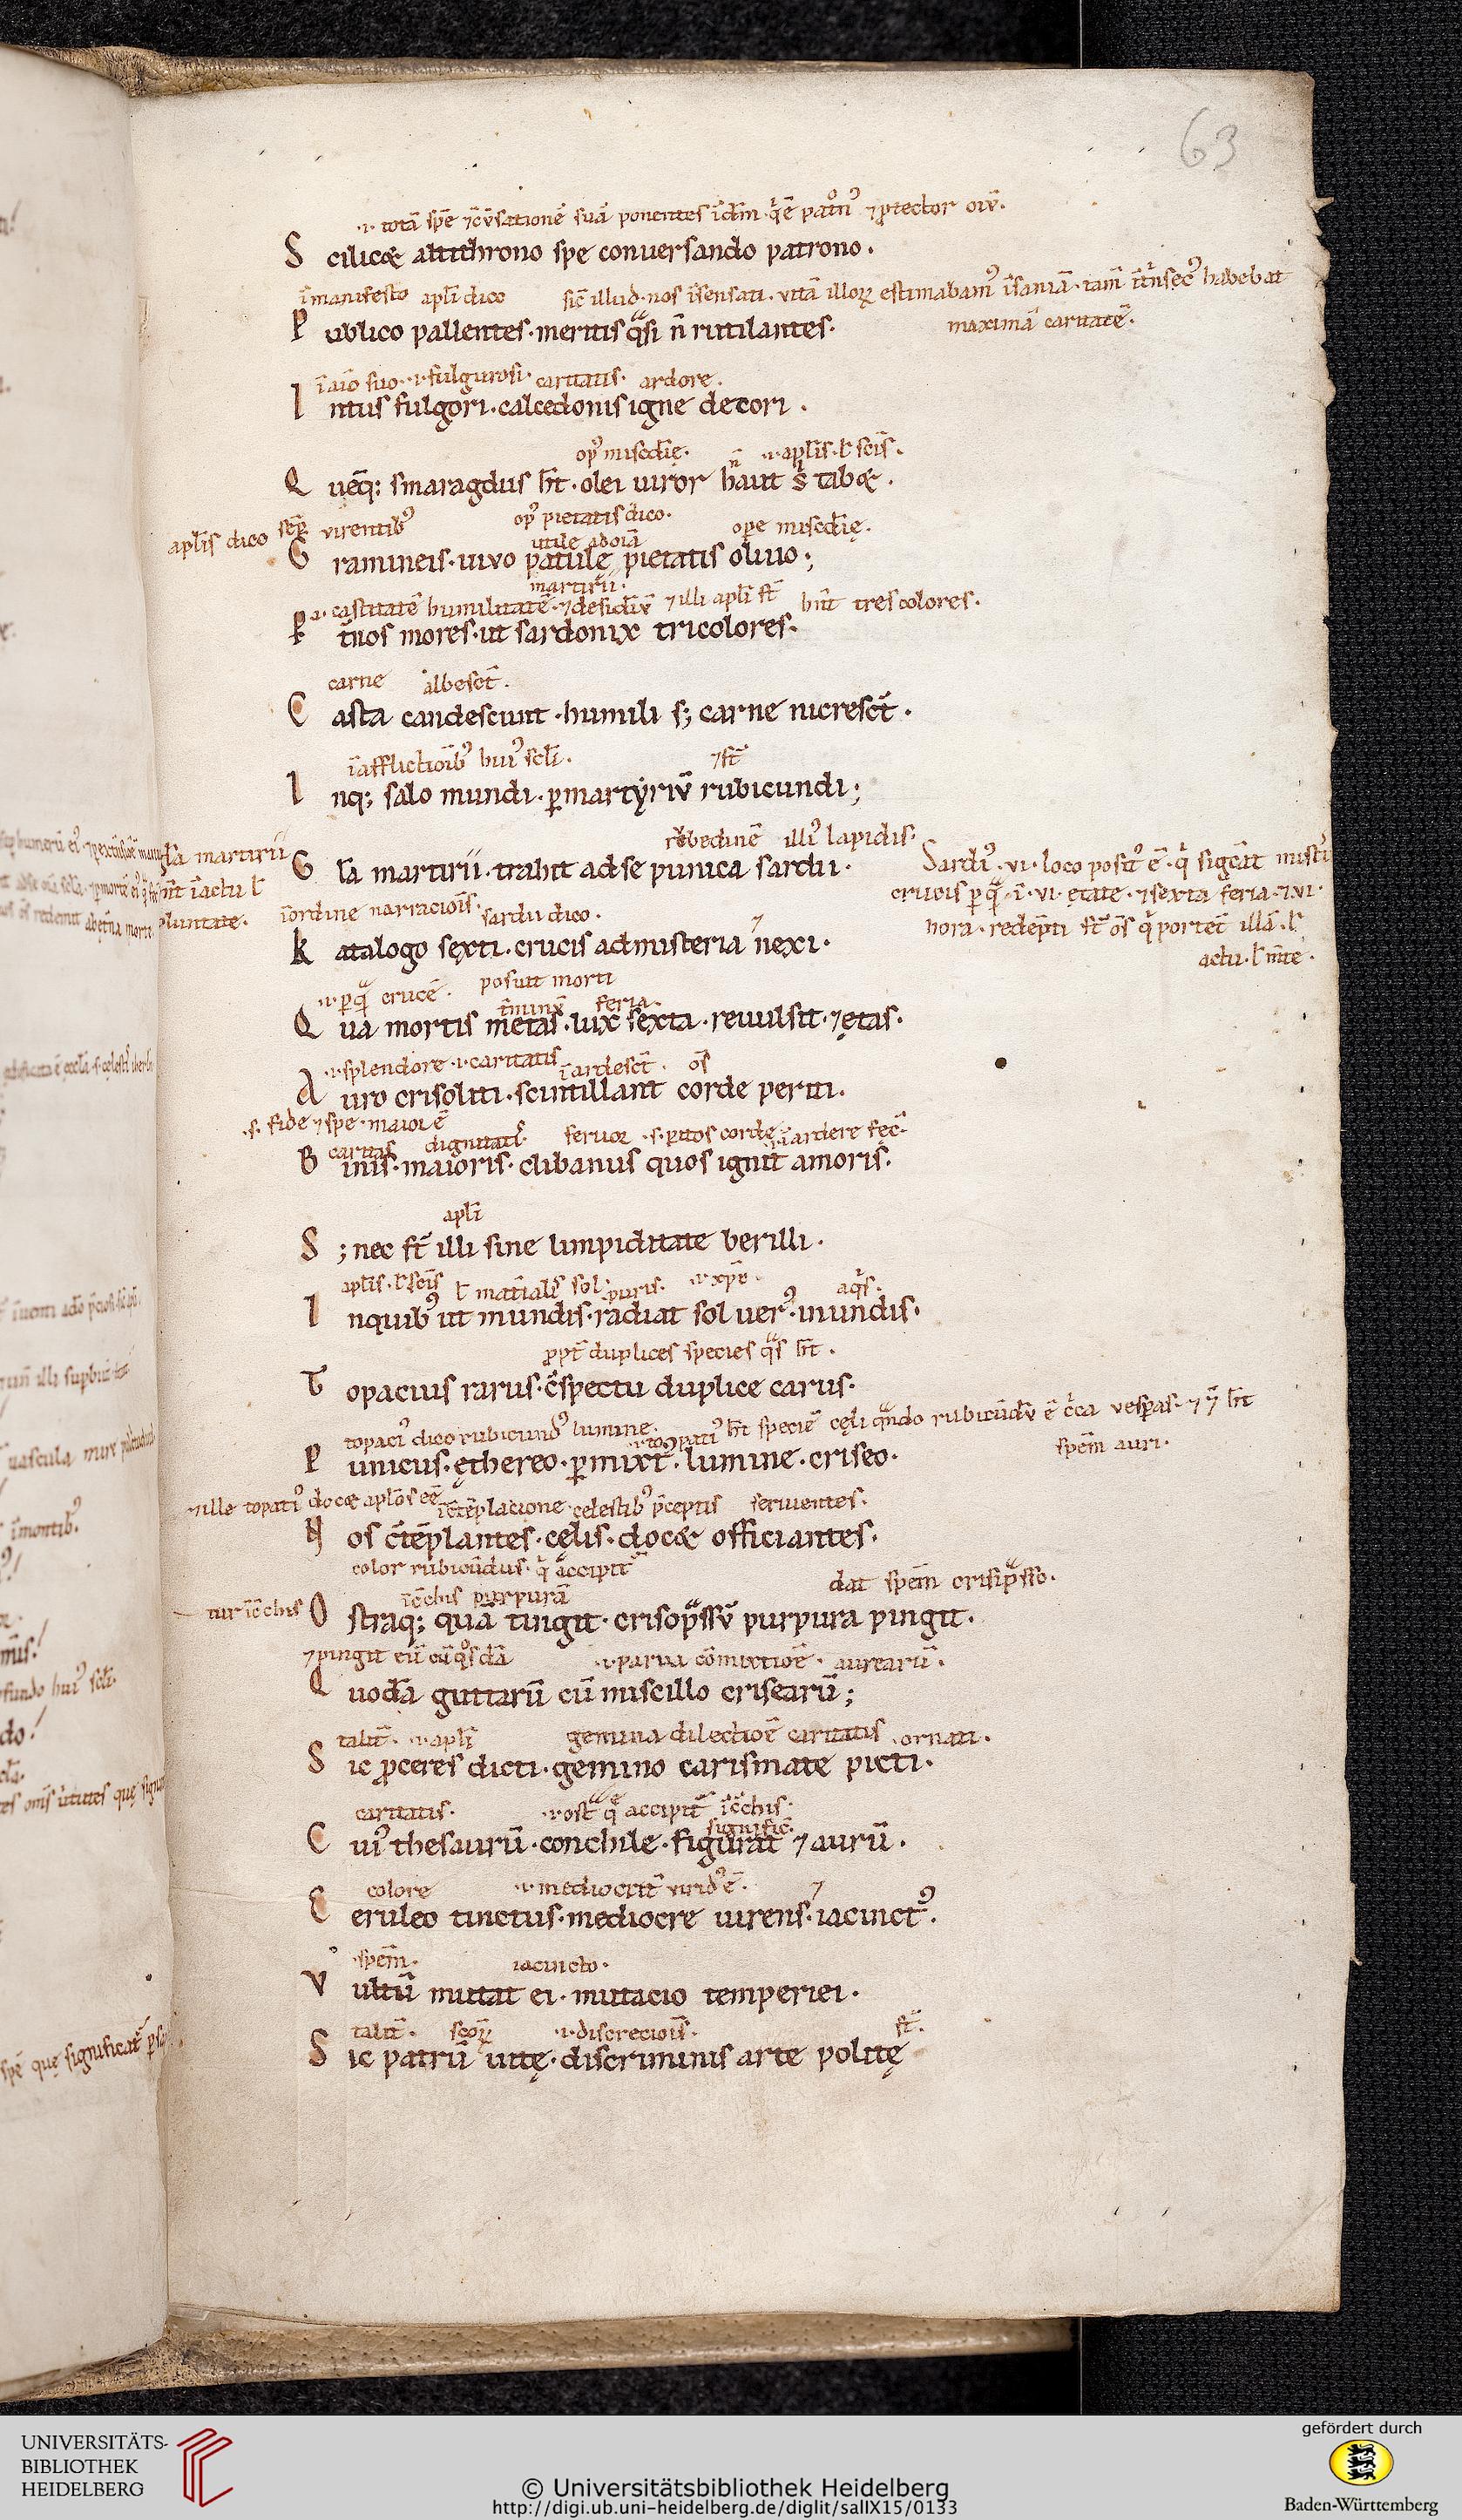 63
.i. totā spē ⁊ c̄v̄sationē suā ponentes ī dm̄ · q̇ ē pat̊nꝰ ⁊ p̱tector oīu̅.
S cilicæ altithrono spe conuersando patrono.
ī manifesto apl̄i dico sic̄ illud · nos īsensati · uitā illoꝝ estimabamꝰ īsaniā · tam̄ īt̄nsecꝰ habebat
P ublico pallentes · meritis qͣsi n̄ rutilantes.
maximā caritatē.
ī aīo suo · .i. fulgurosi · caritatis · ardore.
I ntus fulgori · calcedonis igne decori.
opꝰ mis̄cdīę. n̄ .i. apl̄is · ł sc̄is.
Q ueq̄; smaragdus hn̄t · olei uiror haut s̄ tabæ.
apl̄is dico sep̄ virentibꝰ opꝰ pietatis dico. ope mis̄cdīę.
utile ad oīa
G ramineis · uiuo patulę pietatis oliuo;
martirii.
.i. castitatē humilitatē · ⁊ desid̄iu̅ ⁊ illi apl̄i st̄ hn̄t tres colores.
P t̄nos mores · ut sardonix tricolores.
carne albesc̄t.
C asta candesciunt · humili s; carne nicresc̄t.
ī afflictioībꝰ huiꝰ sc̄li. ⁊ st̄
I nq; salo mundi · ꝑ martyriu̅ rubicundi;
rubedinē illiꝰ lapidis.
gl̄a martirii
G l̄a martirii · trahit ad se punica sardii.
Sardiꝰ · vi · loco positꝰ ē · q̇ sigc̄at mist̄i
crucis ꝑ qͣ · ī · vi · ętate · ⁊ sexta feria · ⁊ vi ·
hora · redēpti st̄ oēs q̇ portēt illā · ł
actu · ł m̄te.
ī ordine narracioīs. sardii dico.
K atalogo sexti · crucis ad misteria nexi.
.i. ꝑ qͣ crucē. posuit morti
t̄minu̅ feria.
Q ua mortis metas · lux sexta · reuulsit · ⁊ ętas.
.i. splendore .i. caritatis īardesc̄t. oēs
A uro crisoliti · scintillant corde periti.
.s. fide ⁊ spe · maior ē
caritas dignitatis. feruor .s. ꝑitos corde īardere fec̄.
B inis · maioris · clibanus quos ignit amoris.
apl̄i
S ; nec st̄ illi sine limpiditate berilli.
apl̄is · ł sc̄is ł mat̄ialis sol puris. .i. xp̄c. aqͥs.
I n quibꝰ ut mundis · radiat sol uerꝰ · in undis.
ꝓpt̄ duplices species qͣs hn̄t.
T opacius rarus · c̄spectu duplice carus.
topaciꝰ dico rubicundꝰ lumine. .i. topatiꝰ hn̄t speciē cęli qn̄do rubicūdu̅ ē c̄ca vesꝑas · ⁊ hn̄t
spēm auri.
P unicus · ęthereo · ꝑmixt̄ · lumine · criseo.
.i. ille topatiꝰ docæ apl̄os eē ī c̄tēplacione celestibꝰ p̄ceptis seruientes.
N os c̄tēplantes · cęlis · docæ officiantes.
color rubicūdus · q̇ accipit̄
ī c̄chis purpurā dat spēm crisip̄sso.
tur ī c̄chis
O straq; quā tingit · crisop̄ssu̅ purpura pingit.
⁊ pingit eū cū qͥsdā .i. parua cōmixtiōē. aurearū.
Q uodā guttarū cū miscillo crisearū;
talit̄. .i. apl̄i gemina dilectioē caritatis .ornati.
S ic ꝓceres dicti · gemino carismate picti.
caritatis. .i. ost̄ q̄ accipit̄ ī c̄chis.
significat.
C uiꝰ thesaurū · conchile · figurat ⁊ aurū.
colore .i. mediocrit̄ viridꝰ ē. ⁊
C eruleo tinctus · mediocre uirens · iacinctꝰ.
spēm. iacincto.
V ultū mutat ei · mutacio temperiei.
talit̄. sc̄oꝝ .i. discrecioīs. st̄.
S ic patrū uitę · discriminis arte politę
UNIVERSITÄTS-
BIBLIOTHEK
HEIDELBERG
© Universitätsbibliothek Heidelberg
http://digi.ub.uni-heidelberg.de/diglit/salIX15/0133
gefördert durch
Baden-Württemberg